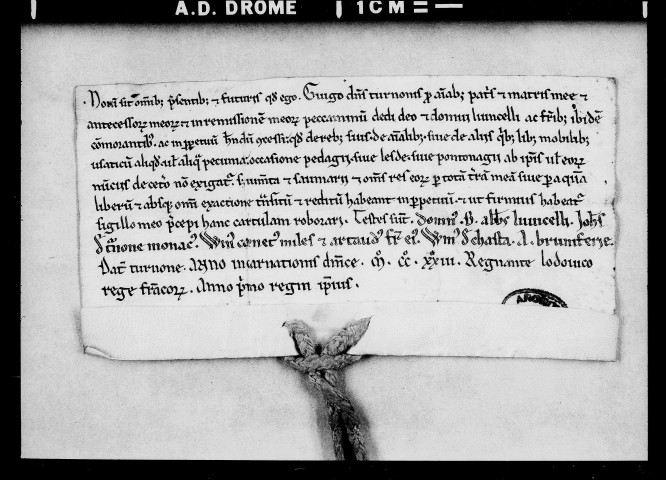 A.D. DROME 1CM
. Notū sit omīb; p̄sentib; & futuris qd̄ ego. Guigo dn̄s turnonis p̄ aīab; patˀs & matris mee &
antecessoꝝ meoꝝ & in remissionē meoꝝ peccaminū dedi deo & domui liuncelli ac fr̄ib; ibidē
cōmorantib;. ac in ꝑpetuū hn̄dū ꝯcessi. qd̄ de reb; suis. de aīalib; siue de aliis qb; lib; mobilib;
usaticū aliqd̄ ul̄ aliqͣ pecunia. occasione pedagii. siue lesde. siue pontonagii ab ipīs ul̄ eoꝝ
nūciis de cet̄o nō exigat᷑. s; iumīta & saumarii & om̄s res eoꝝ p̄ totā tr̄ā meā siue p̄ aquā
liberū & absq; om̄i exactione tˀnsitū & reditū habeant in ꝑpetuū. & ut firmius habeat᷑
sigillo meo p̄cepi hanc cartulam roborari. Testes sūt. domnˀ .B. abb̄s liuncelli. Joh̄s
monacˀ. Wm̄ miles & artaudˀ fr̄ eiˀ. Wmˀ A.
Dat̄ turnone. Anno incarnationis dn̄ice. M. CC. xx iii. Regnante lodouico
rege francoꝝ. Anno p̄mo regni ip̄ius.